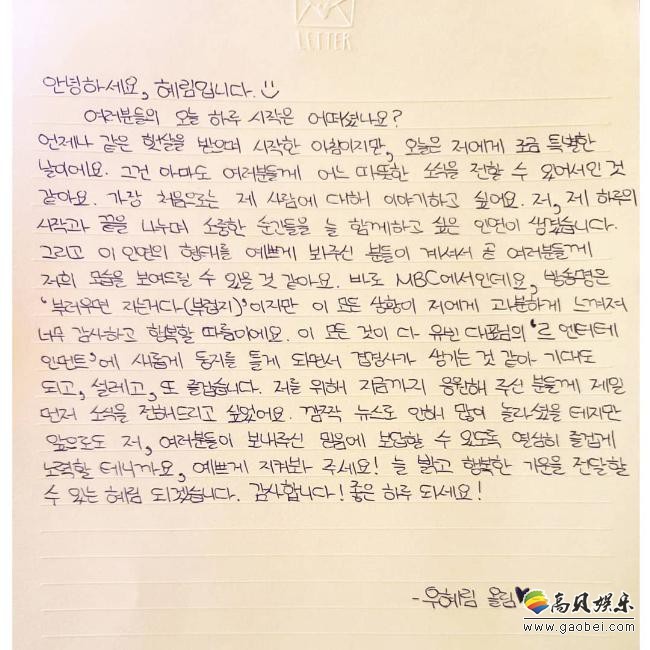 LETTER
안녕하세요, 혜림입니다. ☺
여러분들의 오늘 하루 시작은 어떠셨나요?
언제나 같은 햇살을 받으며 시작한 아침이지만, 오늘은 저에게 조금 특별한
날이에요. 그건 아마도 여러분들께 어느 따뜻한 소식을 전할 수 있어서인 것
같아요. 가장 처음으로는 제 사람에 대해 이야기하고 싶어요. 저, 제 하루의
시작과 끝을 나누며 소중한 순간들을 늘 함께하고 싶은 인연이 생겼습니다.
그리고 이 인연의 형태를 예쁘게 봐주신 분들이 계셔서 곧 여러분들께
저희 모습을 보여드릴 수 있을 것 같아요. 바로 MBC에서인데요, 방송명은
'부러우면 지는거다(부럽지)'이지만 이 모든 상황이 저에게 과분하게 느껴져
너무 감사하고 행복할 따름이에요. 이 모든 것이 다 유빈 대표님의 '르 엔터테
인먼트'에 새롭게 둥지를 틀게 되면서 겹경사가 생기는 것 같아 기대도
되고, 설레고, 또 즐겁습니다. 저를 위해 지금까지 응원해 주신 분들께 제일
먼저 소식을 전해드리고 싶었어요. 깜짝 뉴스로 인해 많이 놀라셨을 테지만
앞으로도 저, 여러분들이 보내주신 믿음에 보답할 수 있도록 열심히 즐겁게
노력할 테니까요, 예쁘게 지켜봐 주세요! 늘 밝고 행복한 기운을 전달할
수 있는 혜림 되겠습니다. 감사합니다! 좋은 하루 되세요!
-우혜림 올림♥
高贝娱乐
www.gaobei.com